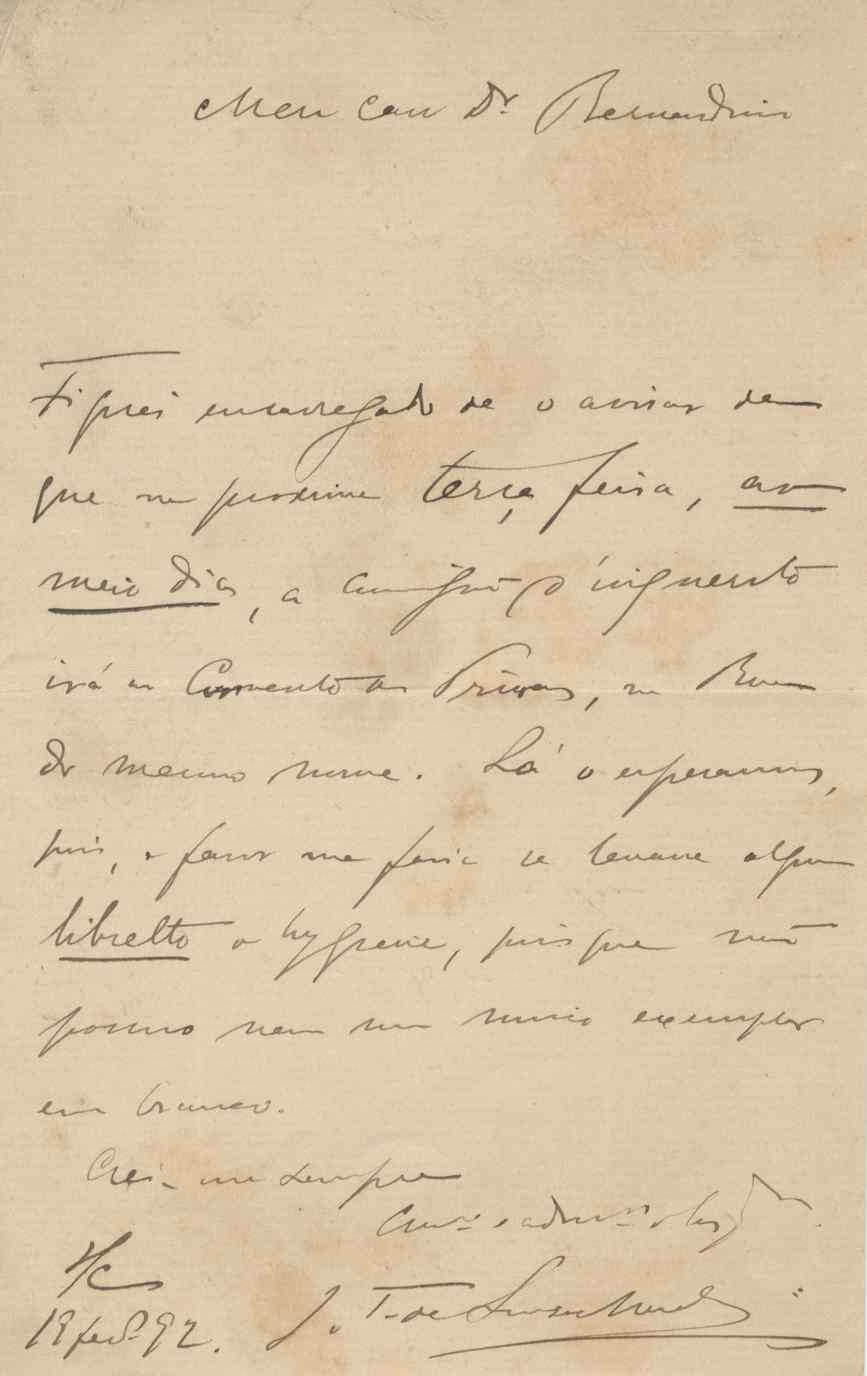 Meu caro Dr. Bernardino
Fiquei encarregado de o avisar de
que na proxima terça feira, ao
meio dia, a commissão d'inquerito
irá ao Convento das Trinas, na Rua
do mesmo nome. Lá o esperamos,
pois, e favor me faria se levasse algum
libretto d hygiene, pois que não
possuo nem um unico exemplar
em branco.
Creia-me sempre
Amo. e admor. obrigdo.
S/C
18 fevo. 92. J. T. de Sousa Martins